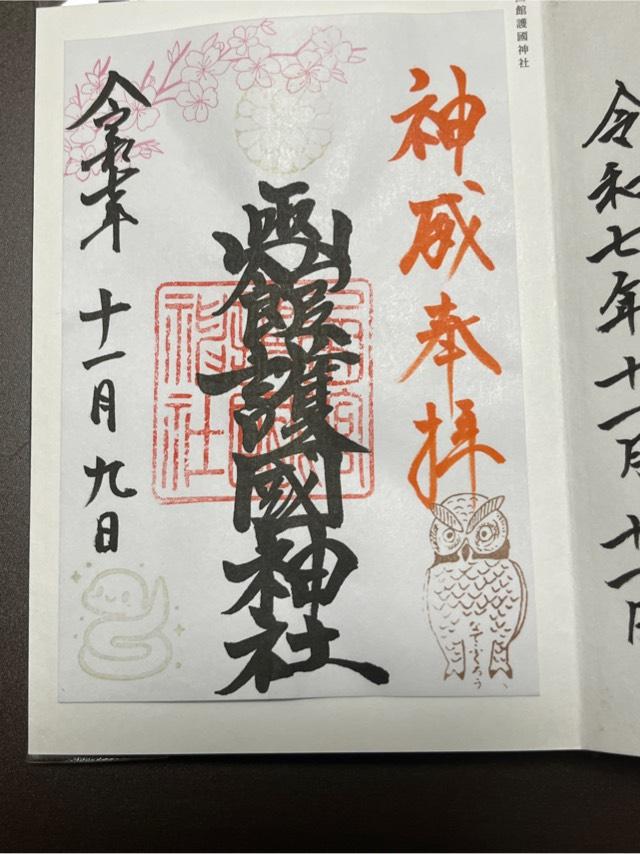 館護國神社
神威奉拝
函館護國神社
なでふくろう
令和七年 十一月 九日
令和七年十一月十一日